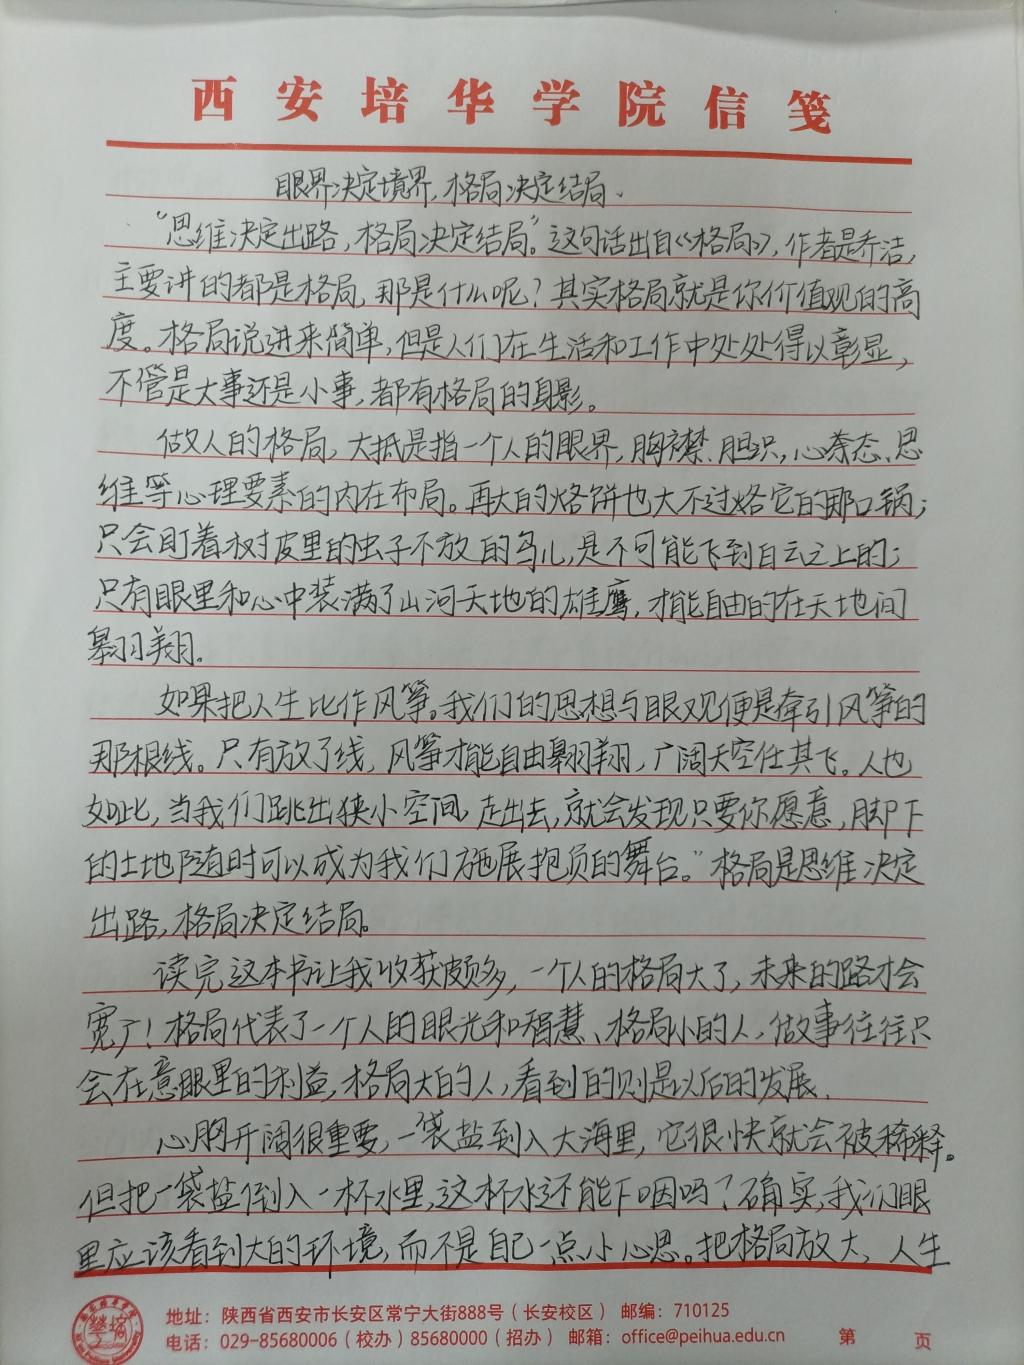 西安培华学院信笺
眼界决定境界,格局决定结局.
“思维决定出路,格局决定结局。”这句话出自《格局》,作者是乔洁,
主要讲的都是格局,那是什么呢?其实格局就是你价值观的高
度。格局说进来简单,但是人们在生活和工作中处处得以彰显,
不管是大事还是小事,都有格局的身影。
做人的格局,大抵是指一个人的眼界,胸襟、胆识,心态、思
维等心理要素的内在布局。再大的烙饼也大不过烙它的那口锅;
只会盯着树皮里的虫子不放的鸟儿,是不可能飞到白云之上的;
只有眼里和心中装满了山河天地的雄鹰,才能自由的在天地间
翱翔.
如果把人生比作风筝。我们的思想与眼观便是牵引风筝的
那根线。只有放了线,风筝才能自由翱翔,广阔天空任其飞。人也
如此,当我们跳出狭小空间,走出去,就会发现只要你愿意,脚下
的土地随时可以成为我们施展抱负的舞台。”格局是思维决定
出路,格局决定结局。
读完这本书让我收获颇多,一个人的格局大了,未来的路才会
宽广!格局代表了一个人的眼光和智慧、格局小的人,做事往往只
会在意眼里的利益,格局大的人,看到的则是以后的发展.
心胸开阔很重要,一袋盐到入大海里,它很快就会被稀释。
但把一袋盐倒入一杯水里,这杯水还能下咽吗?确实,我们眼
里应该看到大的环境,而不是自己一点小心思。把格局放大,人生
地址:陕西省西安市长安区常宁大街888号(长安校区) 邮编:710125
电话:029-85680006(校办)85680000(招办) 邮箱:office@peihua.edu.cn 第 页